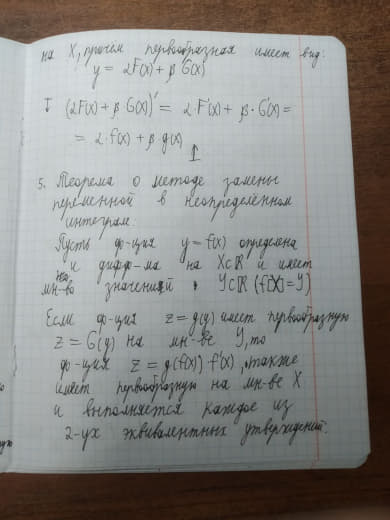 на X, причем первообразная имеет вид:
y = αF(x) + β G(x)
↓ (αF(x) + β·G(x))' = α·F'(x) + β·G'(x) =
= α·f(x) + β·g(x)
↑
5. Теорема о методе замены
переменной в неопределённом
интеграле:
Пусть ф-ция y = f(x) определена
и дифф-ма на X⊂ℝ и имеет
мн-во значений Y⊂ℝ (f[X]=Y)
Если ф-ция z = g(y) имеет первообразную
z = G(y) на мн-ве Y, то
ф-ция z = g(f(x))·f'(x), также
имеет первообразную на мн-ве X
и выполняется каждое из
2-ух эквивалентных утверждений: